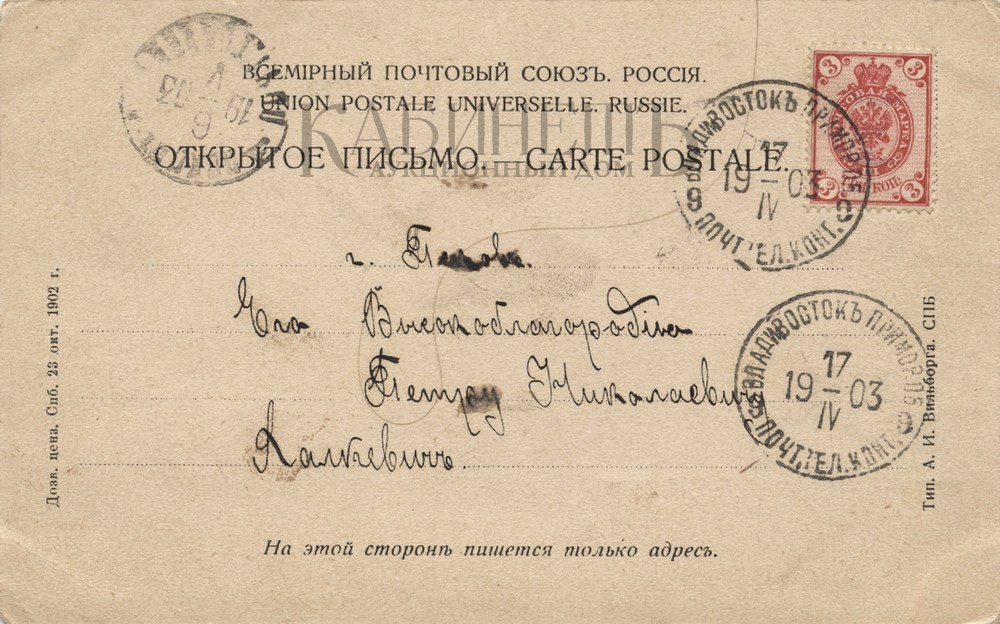 ВСЕМІРНЫЙ ПОЧТОВЫЙ СОЮЗЪ. РОССІЯ.
UNION POSTALE UNIVERSELLE. RUSSIE.
КАБИНЕТЪ
АУКЦИОННЫЙ ДОМ
ОТКРЫТОЕ ПИСЬМО. — CARTE POSTALE.
3 3
3 3
ВЛАДИВОСТОКЪ ПРИМОР.ОБ.
17
19 — 03
IV
9 ПОЧТ.ТЕЛ.КОНТ. 9
г. Псковъ.
Его Высокоблагородію
Петру Николаевичу
Калкевичъ.
ВЛАДИВОСТОКЪ ПРИМОР.ОБ.
17
19 — 03
IV
9 ПОЧТ.ТЕЛ.КОНТ. 9
На этой сторонѣ пишется только адресъ.
Дозв. ценз. Спб. 23 окт. 1902 г.
Тип. А. И. Вильборга. СПБ